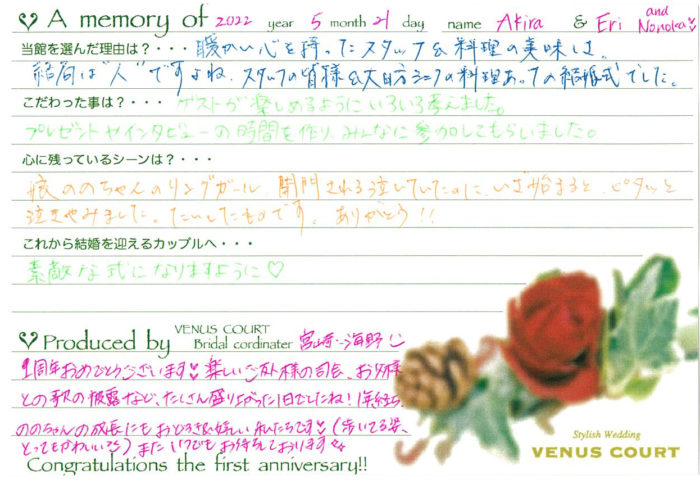 A memory of 2022 year 5 month 21 day name Akira & Eri and Nonoka
当館を選んだ理由は？・・・暖かい心を持ったスタッフ&料理の美味しさ。
結局は"人"ですよね、スタッフの皆様&大日方シェフの料理あっての結婚式でした。
こだわった事は？・・・ゲストが楽しめるようにいろいろ考えました。
プレゼントやインタビューの時間を作り、みんなに参加してもらいました。
心に残っているシーンは？・・・
娘ののちゃんのリングガール、開門される泣いていたのに、いざ始まると、ピタッと
泣きやみました。たいしたものです。ありがとう！！
これから結婚を迎えるカップルへ・・・
素敵な式になりますように♡
Produced by VENUS COURT Bridal cordinater 宮崎・海野
1周年おめでとうございます♥ 楽しいご友人様の司会、お子様
との歌の披露など、たくさん盛り上がった1日でしたね！1年経ち、
ののちゃんの成長にもおどろき&嬉しい私たちです♥（歩いてる姿、
とってもかわいい）またいつでもお待ちしております
Congratulations the first anniversary!!
Stylish Wedding
VENUS COURT